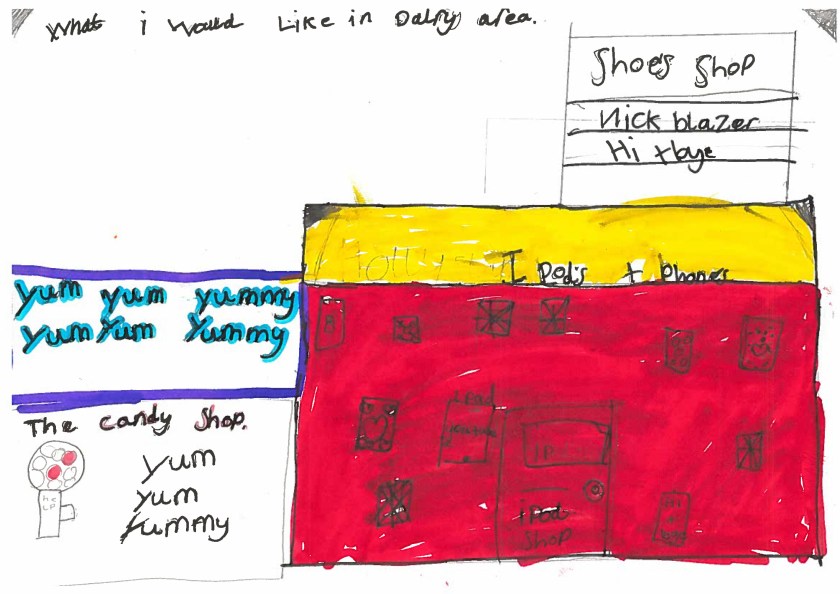 What i would Like in Dalry area.
Shoes Shop
Nick blazer
Hi + bye
I Pod's + Phones
yum yum yummy
yum yum yummy
The candy Shop.
yum
yum
yummy
he
LP
iPad
iPod
Shop